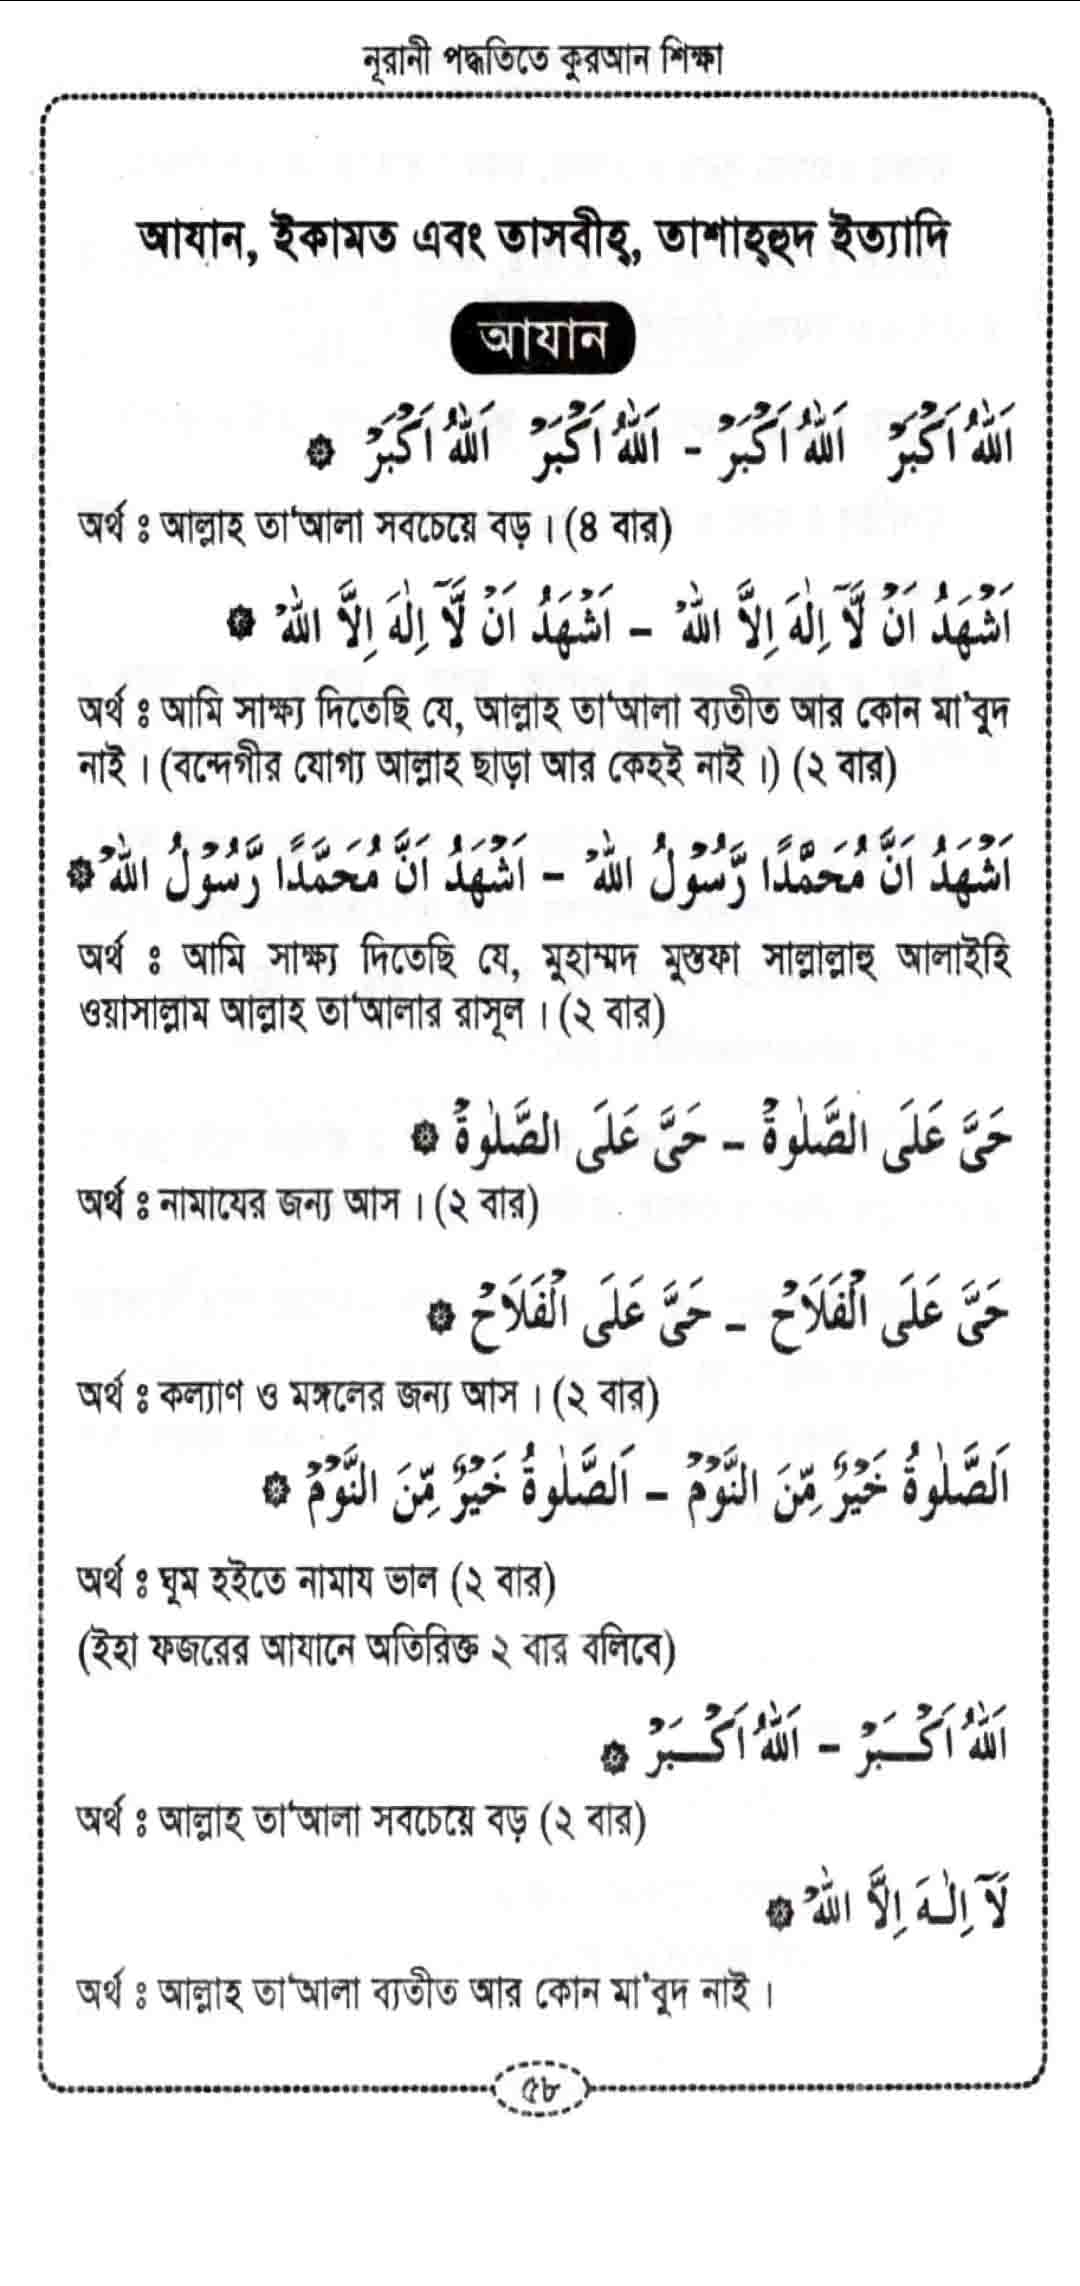 নূরানী পদ্ধতিতে কুরআন শিক্ষা
আযান, ইকামত এবং তাসবীহ্, তাশাহ্হুদ ইত্যাদি
আযান
اَللّٰهُ اَكْبَرْ اَللّٰهُ اَكْبَرْ - اَللّٰهُ اَكْبَرْ اَللّٰهُ اَكْبَرْ ۞
অর্থ ঃ আল্লাহ তা'আলা সবচেয়ে বড় । (৪ বার)
اَشْهَدُ اَنْ لَّآ اِلٰهَ اِلَّا اللّٰهْ - اَشْهَدُ اَنْ لَّآ اِلٰهَ اِلَّا اللّٰهْ ۞
অর্থ ঃ আমি সাক্ষ্য দিতেছি যে, আল্লাহ তা'আলা ব্যতীত আর কোন মা'বুদ
নাই । (বন্দেগীর যোগ্য আল্লাহ ছাড়া আর কেহই নাই ।) (২ বার)
اَشْهَدُ اَنَّ مُحَمَّدًا رَّسُوْلُ اللّٰهْ - اَشْهَدُ اَنَّ مُحَمَّدًا رَّسُوْلُ اللّٰهْ ۞
অর্থ ঃ আমি সাক্ষ্য দিতেছি যে, মুহাম্মদ মুস্তফা সাল্লাল্লাহু আলাইহি
ওয়াসাল্লাম আল্লাহ তা'আলার রাসূল । (২ বার)
حَىَّ عَلَى الصَّلٰوةْ - حَىَّ عَلَى الصَّلٰوةْ ۞
অর্থ ঃ নামাযের জন্য আস । (২ বার)
حَىَّ عَلَى الْفَلَاحْ - حَىَّ عَلَى الْفَلَاحْ ۞
অর্থ ঃ কল্যাণ ও মঙ্গলের জন্য আস । (২ বার)
اَلصَّلٰوةُ خَيْرٌ مِّنَ النَّوْمْ - اَلصَّلٰوةُ خَيْرٌ مِّنَ النَّوْمْ ۞
অর্থ ঃ ঘুম হইতে নামায ভাল (২ বার)
(ইহা ফজরের আযানে অতিরিক্ত ২ বার বলিবে)
اَللّٰهُ اَكْبَرْ - اَللّٰهُ اَكْبَرْ ۞
অর্থ ঃ আল্লাহ তা'আলা সবচেয়ে বড় (২ বার)
لَآ اِلٰهَ اِلَّا اللّٰهْ ۞
অর্থ ঃ আল্লাহ তা'আলা ব্যতীত আর কোন মা'বুদ নাই ।
৫৮